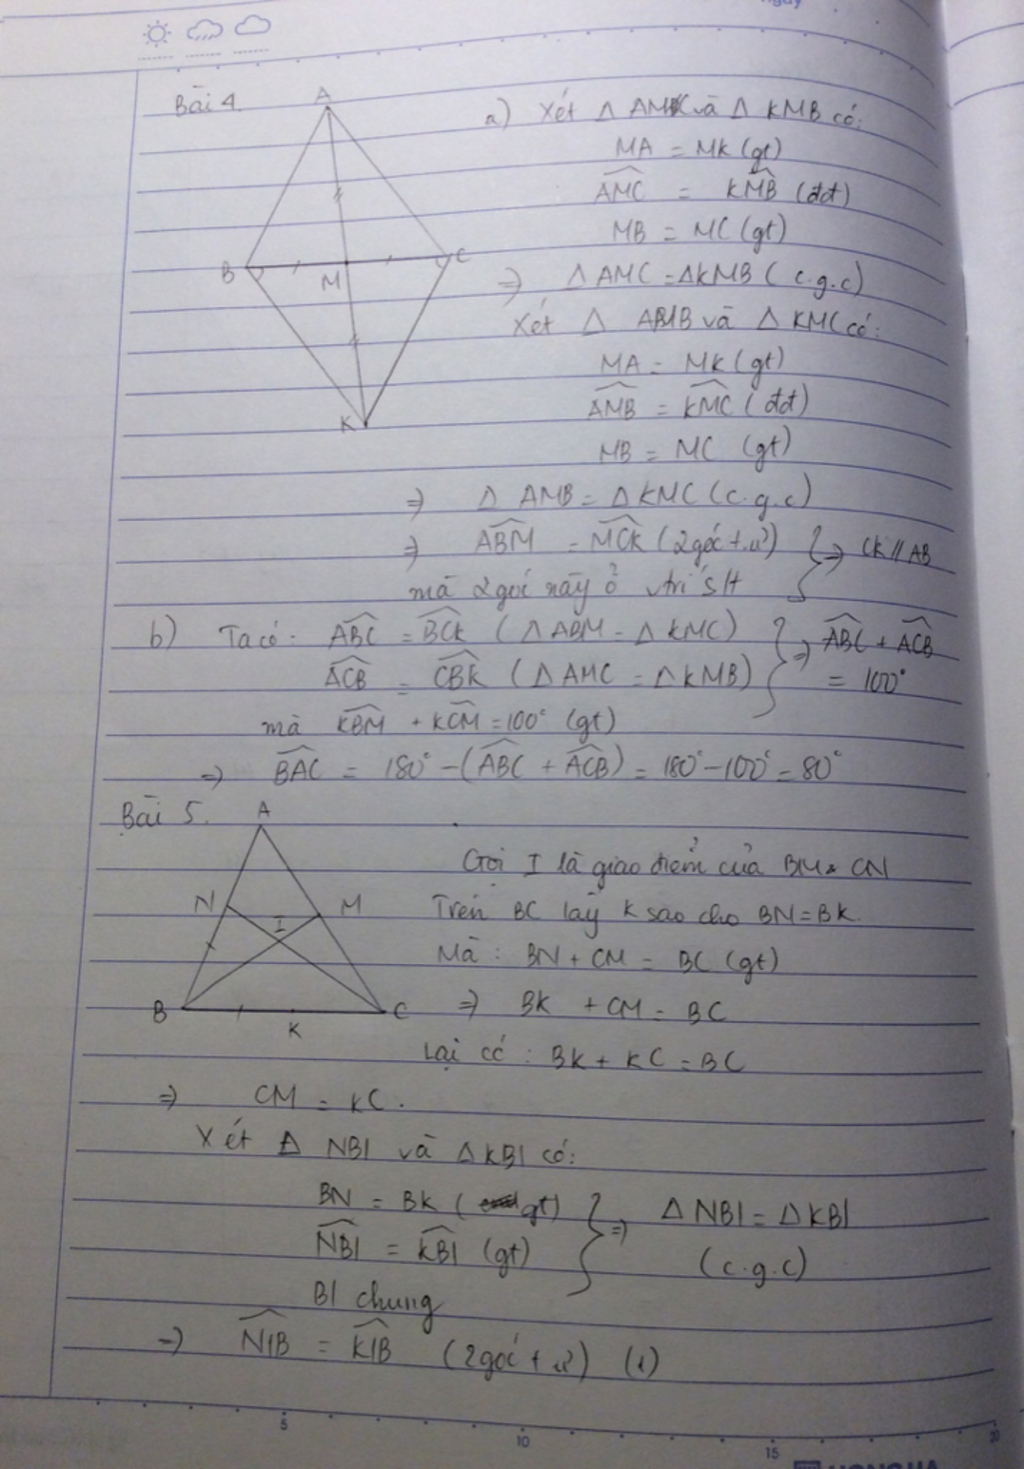 ngày
Bài 4.
A
B
M
C
K
a) Xét Δ AMC và Δ KMB có:
MA = MK (gt)
AMC = KMB (đđ)
MB = MC (gt)
=> Δ AMC = ΔKMB ( c.g.c)
Xét Δ AMB và Δ KMC có:
MA = MK (gt)
AMB = KMC ( đđ)
MB = MC (gt)
=> Δ AMB = Δ KMC (c.g.c)
=> ABM = MCK (2 góc t.ư) => CK // AB
mà 2 góc này ở vtrí slt
b) Ta có: ABC = BCK ( Δ ABM = Δ KMC) => ABC + ACB
ACB = CBK ( Δ AMC = Δ KMB) = 100°
mà KBM + KCM = 100° (gt)
=> BAC = 180° - (ABC + ACB) = 180° - 100° = 80°
Bài 5.
A
N
M
I
B
K
C
Gọi I là giao điểm của BM & CN
Trên BC lấy K sao cho BN = BK.
Mà : BN + CM = BC (gt)
=> BK + CM = BC
Lại có : BK + KC = BC
=> CM = KC.
Xét Δ NBI và Δ KBI có:
BN = BK ( gt) => Δ NBI = Δ KBI
NBI = KBI (gt) ( c.g.c)
BI chung
=> NIB = KIB (2 góc t.ư) (1)
5
10
15
20
HONG HA